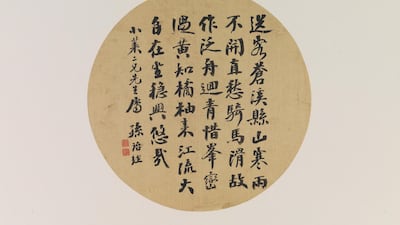 送客蒼溪縣山寒雨
不開直愁騎馬滑故
作泛舟迴青惜峯巒
過黃知橘柚来江流大
自在坐穩興悠哉
二兄先生屬 孫詒經